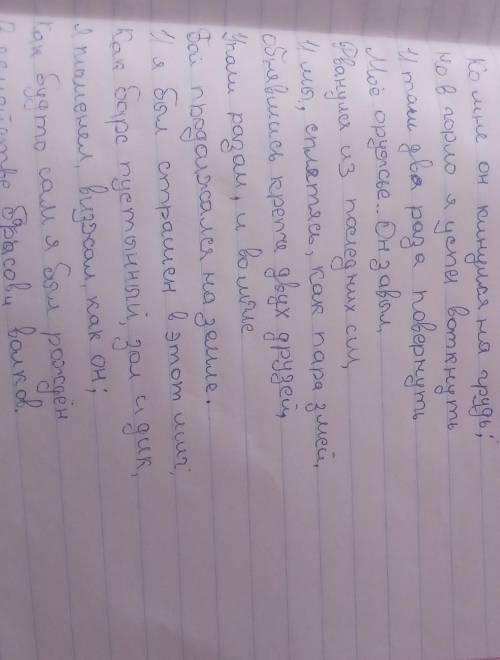 Ко мне он кинулся на грудь;
Но в горло я успел воткнуть
И там два раза повернуть
Моё оружье.. Он завыл,
Рванулся из последних сил,
И мы, сплетясь, как пара змей,
обнявшись крепче двух друзей,
Упали разом, и во мгле
Бой продолжался на земле.
И я был страшен в этот миг;
Как барс пустынный, зол и дик,
Я пламенел, визжал, как он;
Как будто сам я был рождён
В семействе барсов и волков